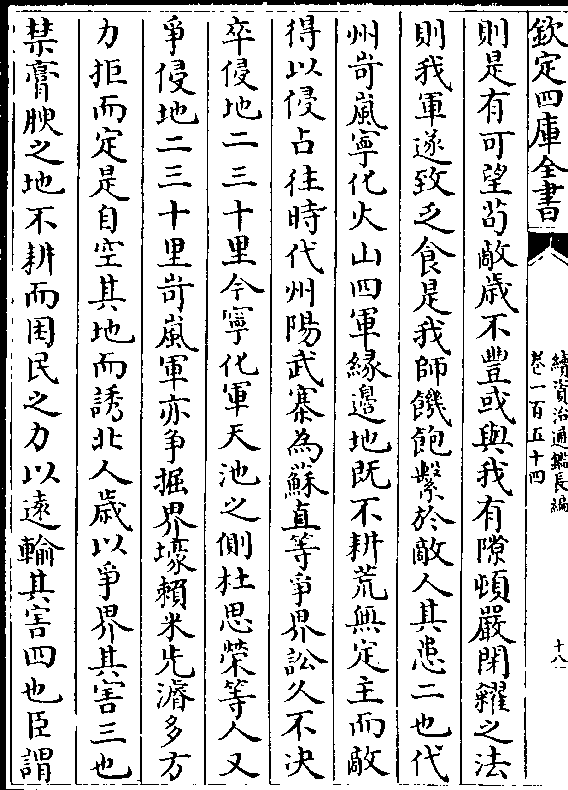 欽定四庫全書
續資治通鑑長編
卷一百五十四
十八
則是有可望苟敵歳不豐或與我有隙頓嚴閉糴之法
則我軍遂致乏食是我師饑飽繫於敵人其患二也代
州岢嵐寧化火山四軍緣邊地既不耕荒無定主而敵
得以侵占往時代州陽武寨為蘇直等爭界訟久不决
卒侵地二三十里今寧化軍天池之側杜思榮等人又
爭侵地二三十里岢嵐軍亦爭掘界壕賴米光濬多方
力拒而定是自空其地而誘北人歳以爭界其害三也
禁膏腴之地不耕而困民之力以遠輸其害四也臣謂